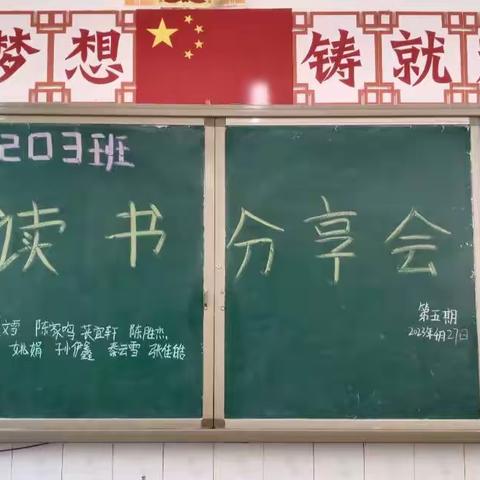 梦想 铸就
203班
读书 分享会
文雪 陈家鸣 宜轩 陈胜杰
姚娟 孙伊鑫 秦云雪 张佳皓
第五期
2023年4月27日